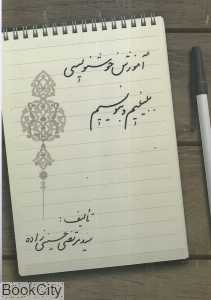 آموزش خوشنویسی
ببینیم و بنویسیم
تألیف:
سید مرتضی حسینی زاده
BookCity